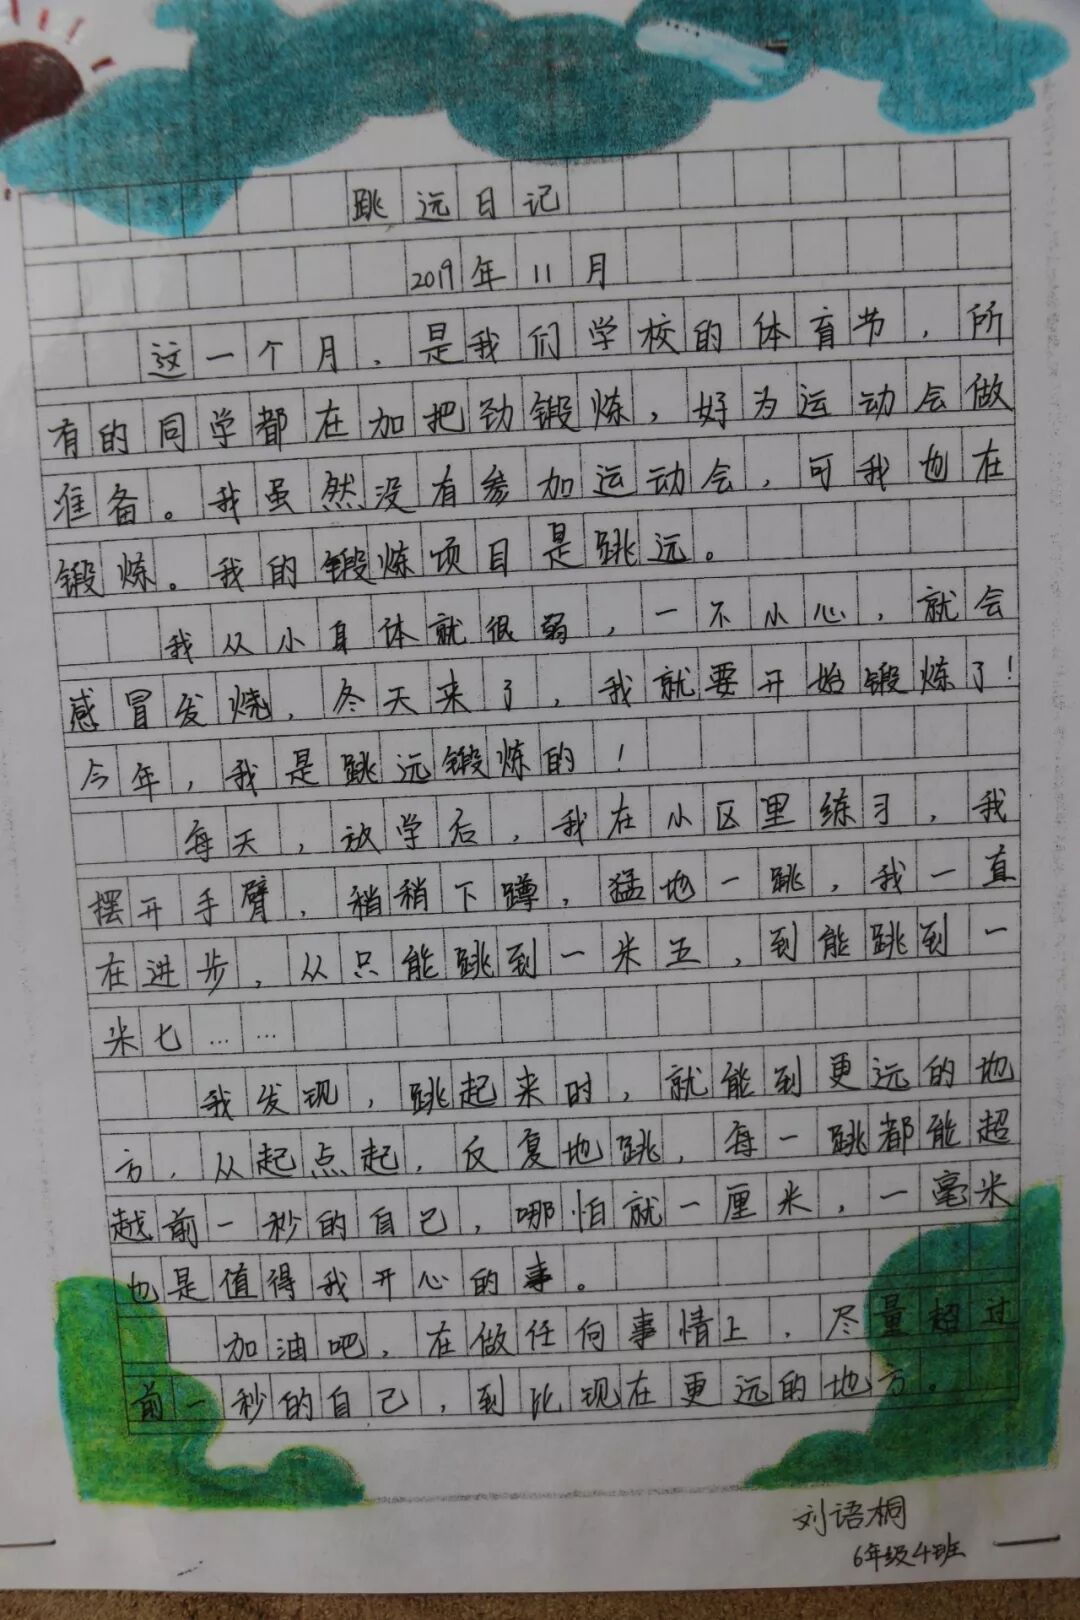 跳远日记
2019年11月
这一个月，是我们学校的体育节，所
有的同学都在加把劲锻炼，好为运动会做
准备。我虽然没有参加运动会，可我也在
锻炼。我的锻炼项目是跳远。
我从小身体就很弱，一不小心，就会
感冒发烧，冬天来了，我就要开始锻炼了！
今年，我是跳远锻炼的！
每天，放学后，我在小区里练习，我
摆开手臂，稍稍下蹲，猛地一跳，我一直
在进步，从只能跳到一米五，到能跳到一
米七……
我发现，跳起来时，就能到更远的地
方，从起点起，反复地跳，每一跳都能超
越前一秒的自己，哪怕就一厘米，一毫米
也是值得我开心的事。
加油吧，在做任何事情上，尽量超过
前一秒的自己，到比现在更远的地方。
刘语桐
6年级4班